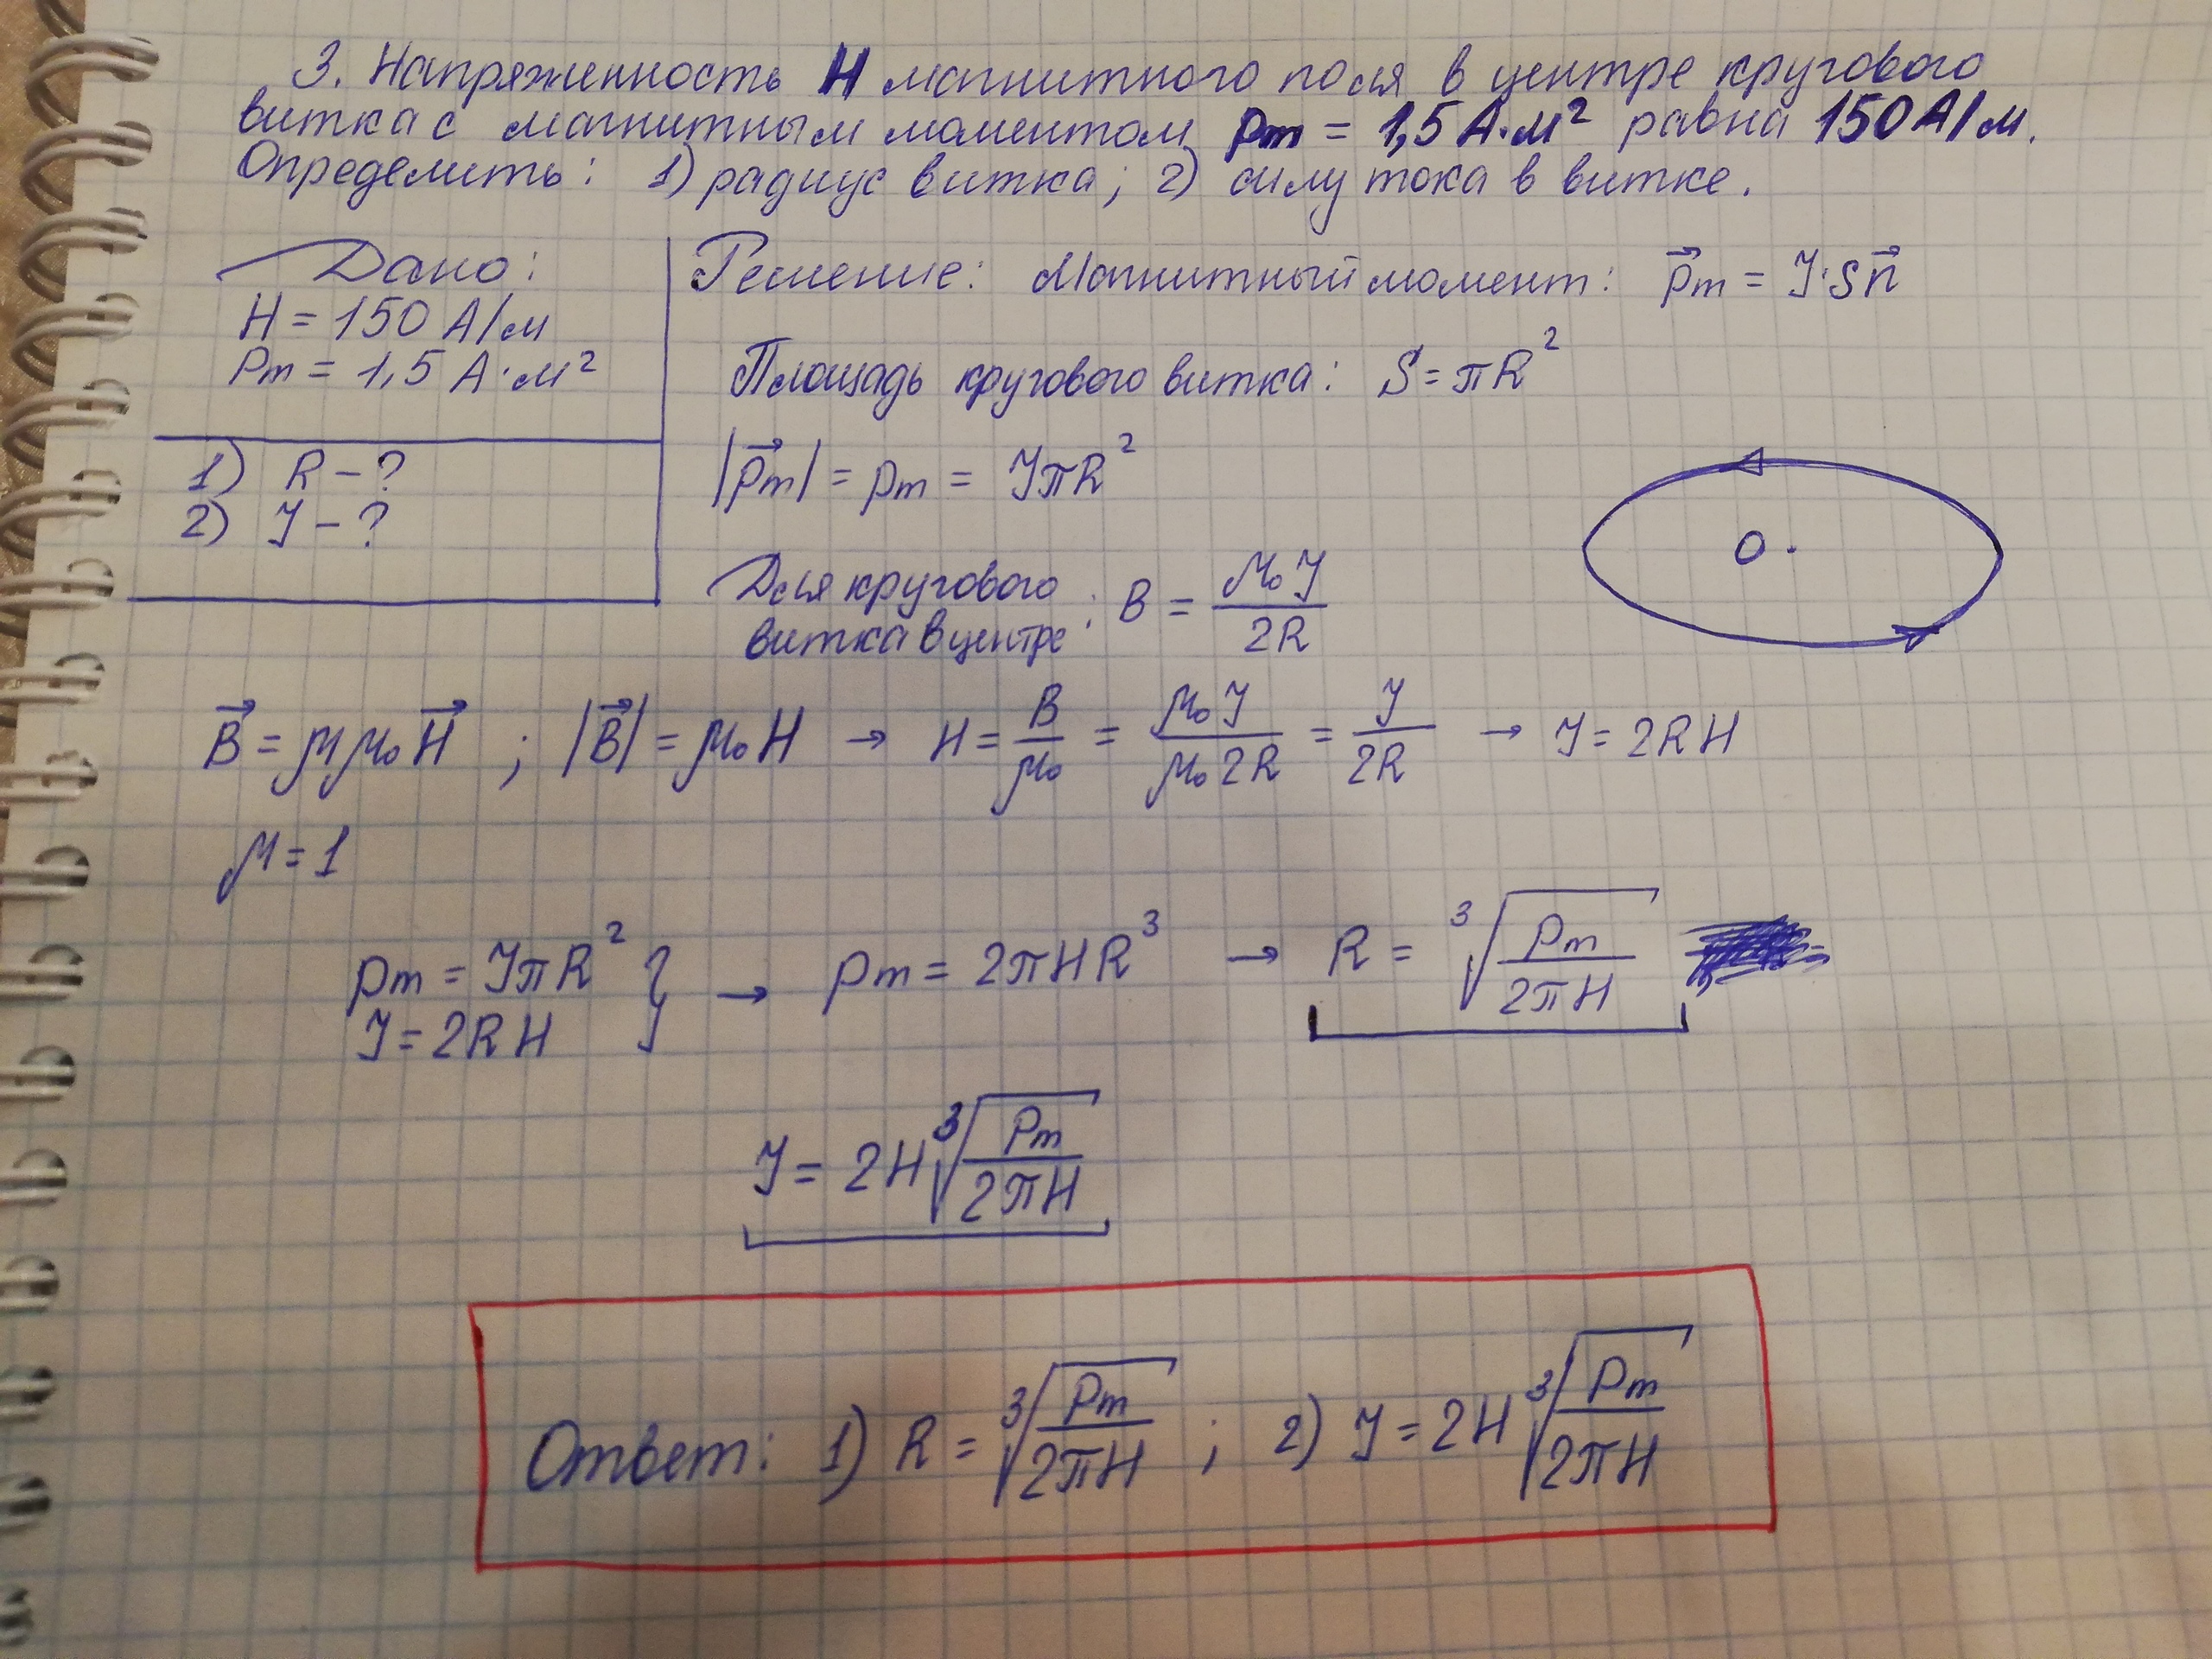 3. Напряженность H магнитного поля в центре кругового
витка с магнитным моментом pm = 1,5 А·м² равна 150 А/м.
Определить: 1) радиус витка; 2) силу тока в витке.
Дано:
H = 150 А/м
Pm = 1,5 А·м²
1) R – ?
2) J – ?
Решение: Магнитный момент: p⃗m = J·Sn⃗
Площадь кругового витка: S = πR²
|p⃗m| = pm = JπR²
Для кругового
витка в центре : B = μ₀J / 2R
O
B⃗ = μμ₀H⃗ ; |B⃗| = μ₀H → H = B/μ₀ = μ₀J / μ₀2R = J / 2R → J = 2RH
μ = 1
pm = JπR² } → pm = 2πHR³ → R = ³√(Pm / 2πH)
J = 2RH
J = 2H ³√(Pm / 2πH)
Ответ: 1) R = ³√(Pm / 2πH) ; 2) J = 2H ³√(Pm / 2πH)